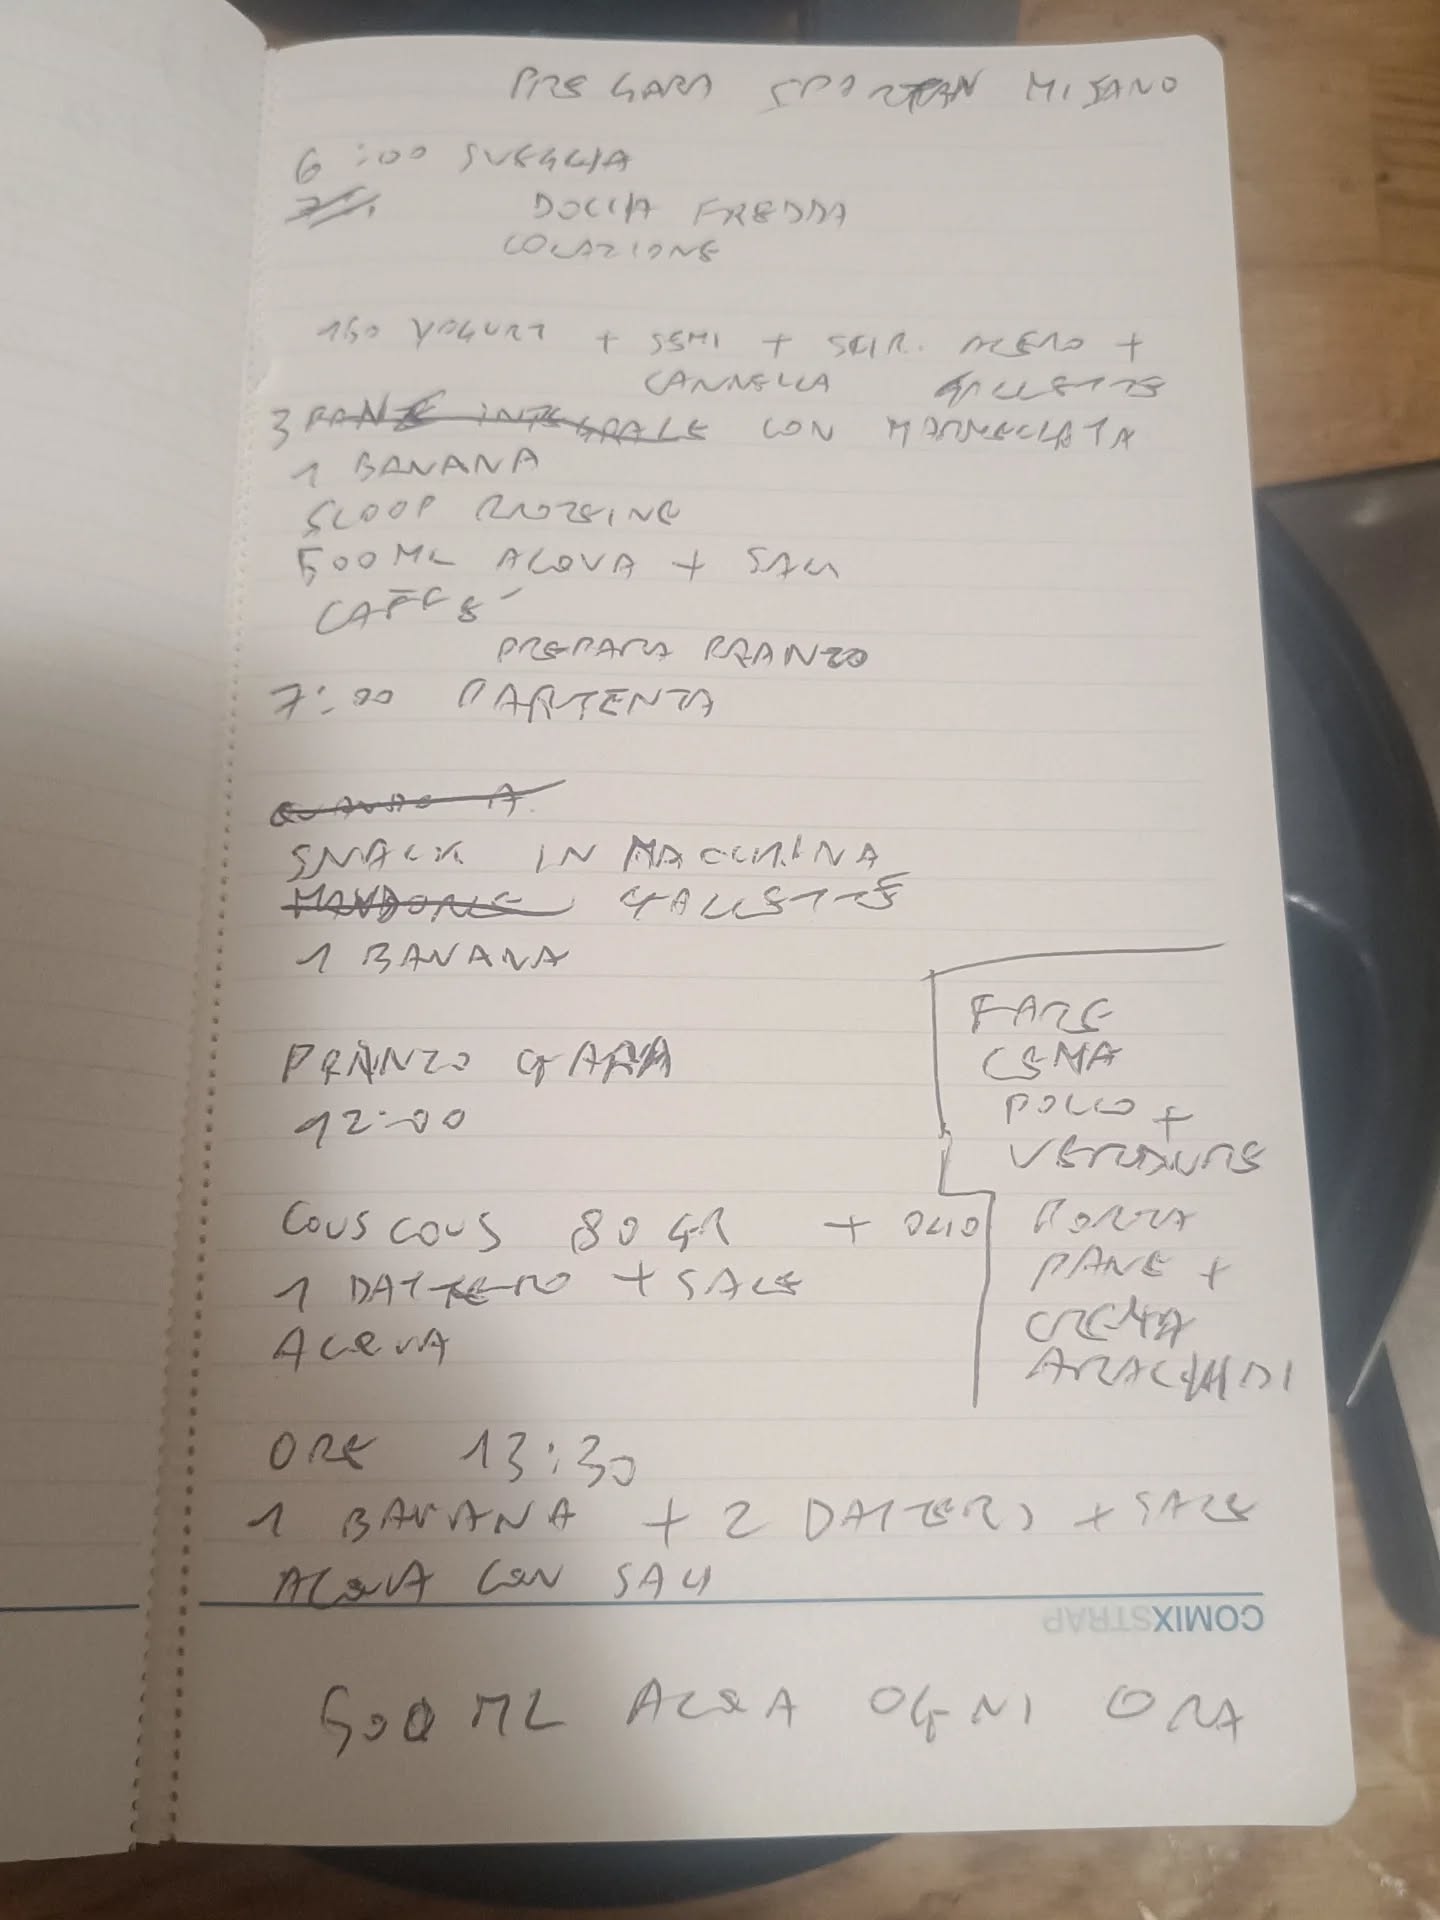 PRE GARA SPARTAN MISANO
6:00 SVEGLIA
DOCCIA FREDDA
COLAZIONE
150 YOGURT + SEMI + SCIR. ACERO +
CANNELLA GALLETTE
3 PANE INTEGRALE CON MARMELLATA
1 BANANA
SCOOP PROTEINE
500 ML ACQUA + SALI
CAFFE'
PREPARA PRANZO
7:00 PARTENZA
QUANDO A.
SNACK IN MACCHINA
MANDORLE GALLETTE
1 BANANA
PRANZO GARA
12:00
COUS COUS 80 GR + OLIO
1 DATTERO + SALE
ACQUA
FARE
CENA
POLLO +
VERDURE
PORTA
PANE +
CREMA
ARACHIDI
ORE 13:30
1 BANANA + 2 DATTERI + SALE
ACQUA CON SALI
COMIXSTRAP
500 ML ACQA OGNI ORA